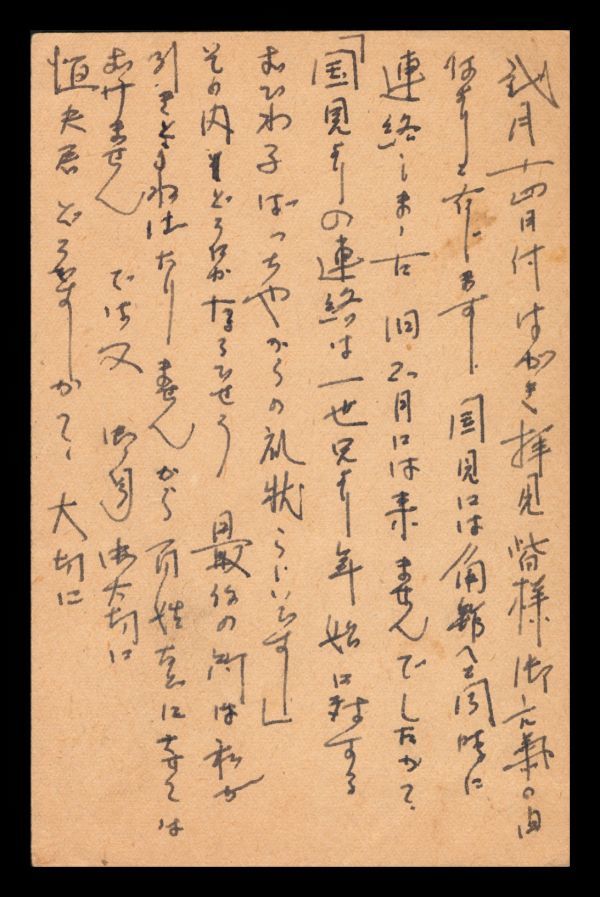 弐月十四日付はがき拝見皆様御元氣の由
何よりと存じます 国見には角館へと同時に
連絡しました 旧二月には来ませんでしたかて、
「国見よりの連絡は一世兄より年始に対する
おひわ子ばっちやからの礼状らしいです」
その内 どうにかなるでせう 最後の所は私が
引きとらねばなりませんから 百姓 に 寄ては
おけません では又 御身御大切に
恒夫君どうですかて、大切に